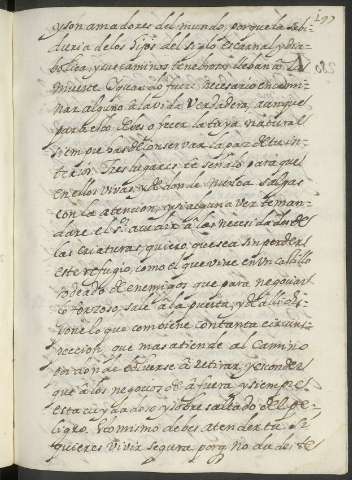 197
y son amadores del mundo, porque la sabi-
duria de los hijos del siglo es carnal y dia-
bolica, y sus caminos tenebrosos llevan a la
muerte. Y quando fuere necesario encami-
nar alguno à la vida Verdadera, aunque
para ello debas ofrecer la tuya natural
siempre has de conservar la paz de tu in-
terior. Tres lugares te señalo para que
en ellos vivas, y de donde nunca salgas
con la atencion, y si alguna vez te man-
dare el Sr. acudir à las necesidades de
las criaturas, quiero que sea sin perder
este refugio, como el que vive en un castillo
rodeado de enemigos que para negociar
lo forzoso sale à la puerta, y de alli dis-
pone lo que combiene con tanta circuns-
peccion, que mas atiende al camino
por donde ha de bolverse à retirar, y esconder
que à los negocios de à fuera y siempre
esta cuydadoso, y sobre saltado del pe-
ligro. Lo mismo debes atender tu si
quieres vivir segura porq. no dudes de